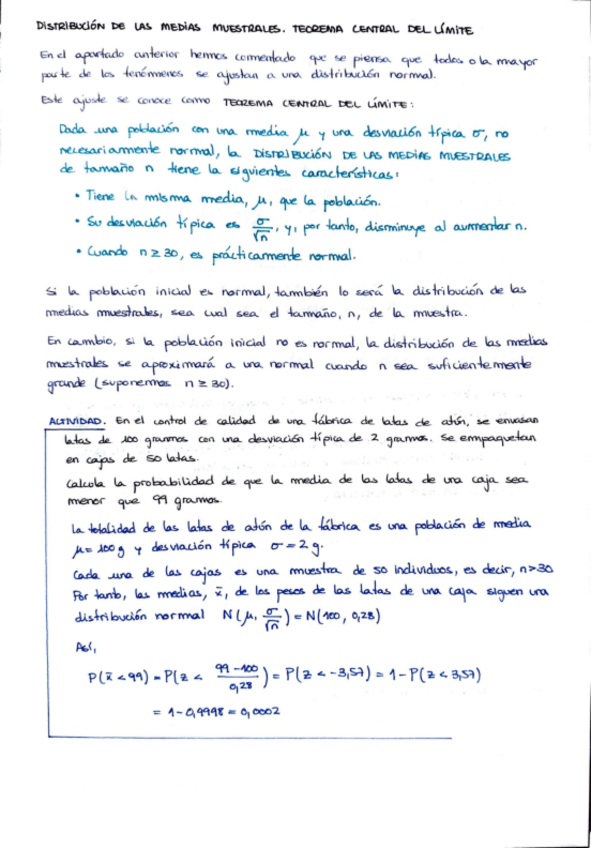 DISTRIBUCIÓN DE LAS MEDIAS MUESTRALES. TEOREMA CENTRAL DEL LÍMITE
En el apartado anterior hemos comentado que se piensa que todos o la mayor
parte de los fenómenos se ajustan a una distribución normal.
Este ajuste se conoce como TEOREMA CENTRAL DEL LÍMITE:
Dada una población con una media μ y una desviación típica σ, no
necesariamente normal, la DISTRIBUCIÓN DE LAS MEDIAS MUESTRALES
de tamaño n tiene la siguientes características:
• Tiene la misma media, μ, que la población.
• Su desviación típica es σ/√n, y, por tanto, disminuye al aumentar n.
• Cuando n ≥ 30, es prácticamente normal.
Si la población inicial es normal, también lo será la distribución de las
medias muestrales, sea cual sea el tamaño, n, de la muestra.
En cambio, si la población inicial no es normal, la distribución de las medias
muestrales se aproximará a una normal cuando n sea suficientemente
grande (suponemos n ≥ 30).
ACTIVIDAD. En el control de calidad de una fábrica de latas de atún, se envasan
latas de 100 gramos con una desviación típica de 2 gramos. Se empaquetan
en cajas de 50 latas.
Calcula la probabilidad de que la media de las latas de una caja sea
menor que 99 gramos.
La totalidad de las latas de atún de la fábrica es una población de media
μ = 100 g y desviación típica σ = 2 g.
Cada una de las cajas es una muestra de 50 individuos, es decir, n>30
Por tanto, las medias, x̄, de los pesos de las latas de una caja siguen una
distribución normal N(μ, σ/√n) = N(100, 0,28)
Así,
P(x̄ < 99) = P(z < (99-100)/0,28) = P(z < -3,57) = 1 - P(z < 3,57)
= 1 - 0,9998 = 0,0002